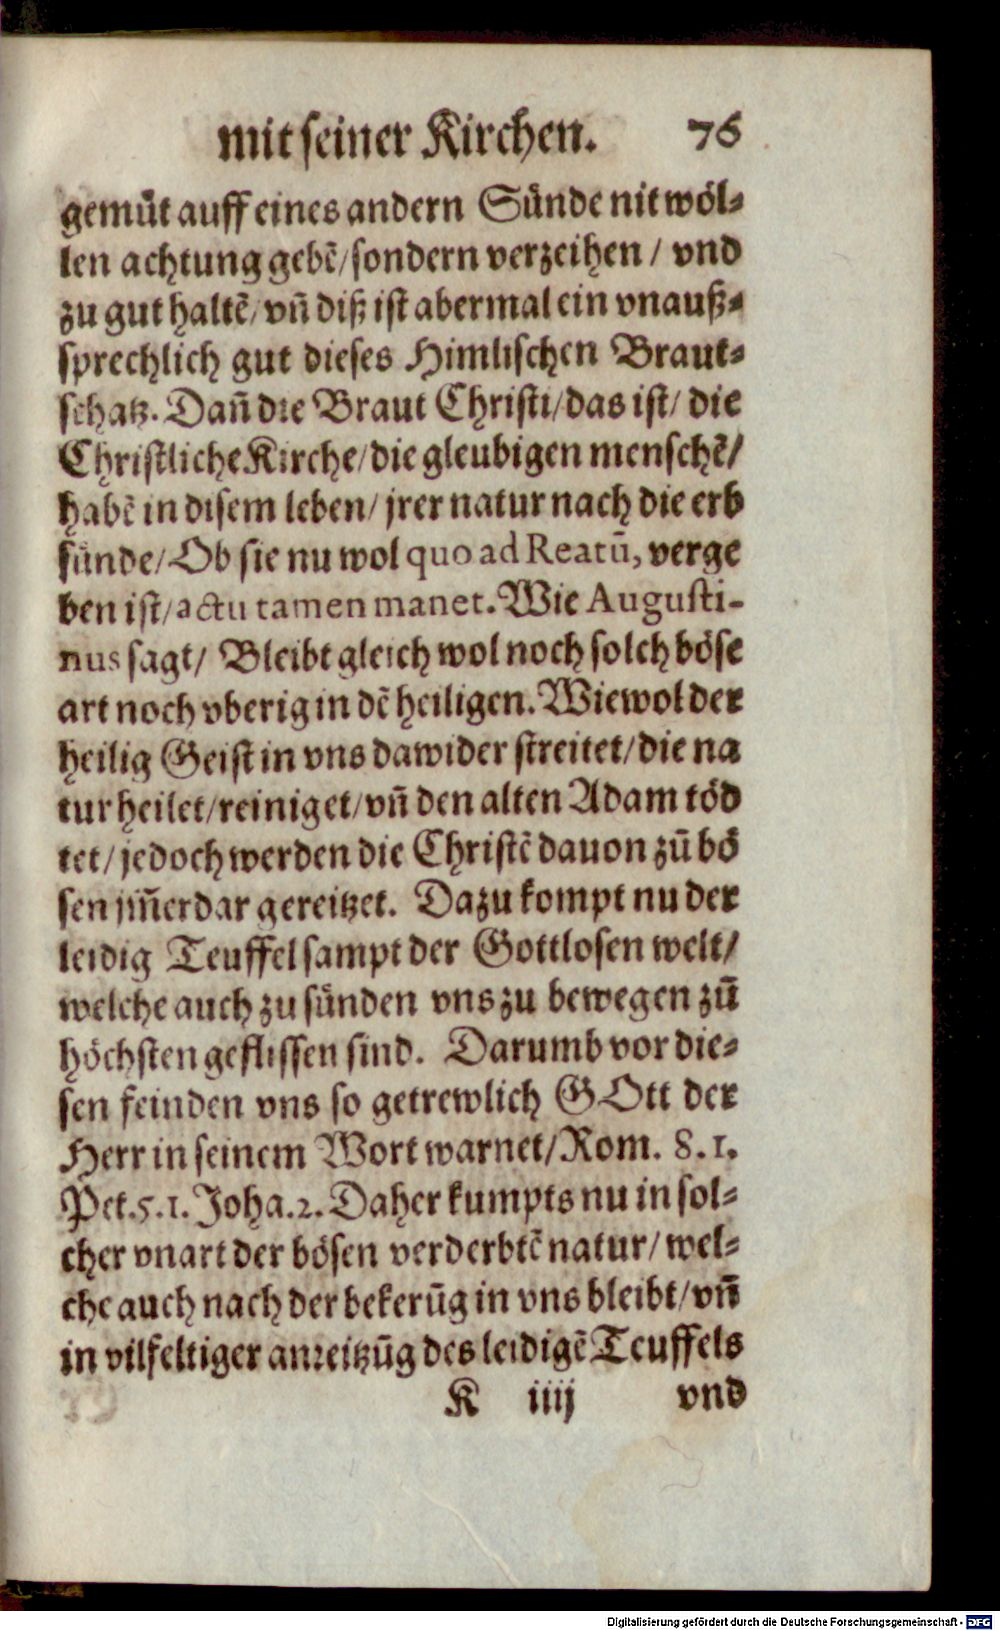 mit seiner Kirchen. 76
gemüt auff eines andern Sünde nit wöl⸗
len achtung gebẽ/ sondern verzeihen / vnd
zu gut haltẽ/ vñ diß ist abermal ein vnauß⸗
sprechlich gut dieses Himlischen Braut⸗
schatz. Dañ die Braut Christi/ das ist/ die
Christliche Kirche/ die gleubigen menschẽ/
habẽ in disem leben/ jrer natur nach die erb
sünde/ Ob sie nu wol quo ad Reatũ, verge
ben ist/ actu tamen manet. Wie Augusti-
nus sagt/ Bleibt gleich wol noch solch böse
art noch vberig in dẽ heiligen. Wiewol der
heilig Geist in vns dawider streitet/ die na
tur heilet/ reiniget/ vñ den alten Adam töd
tet/ jedoch werden die Christẽ dauon zũ bö
sen jm̃erdar gereitzet. Dazu kompt nu der
leidig Teuffel sampt der Gottlosen welt/
welche auch zu sünden vns zu bewegen zũ
höchsten geflissen sind. Darumb vor die⸗
sen feinden vns so getrewlich GOtt der
Herr in seinem Wort warnet/ Rom. 8. 1.
Pet. 5. 1. Joha. 2. Daher kumpts nu in sol⸗
cher vnart der bösen verderbtẽ natur/ wel⸗
che auch nach der bekerũg in vns bleibt/ vñ
in vilfeltiger anreitzũg des leidigẽ Teuffels
K iiij vnd
Digitalisierung gefördert durch die Deutsche Forschungsgemeinschaft - DFG